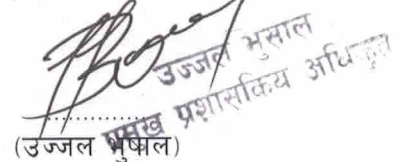 उज्जल भुसाल
प्रमुख प्रशासकिय अधिकृत
....................
(उज्जल भुषाल)